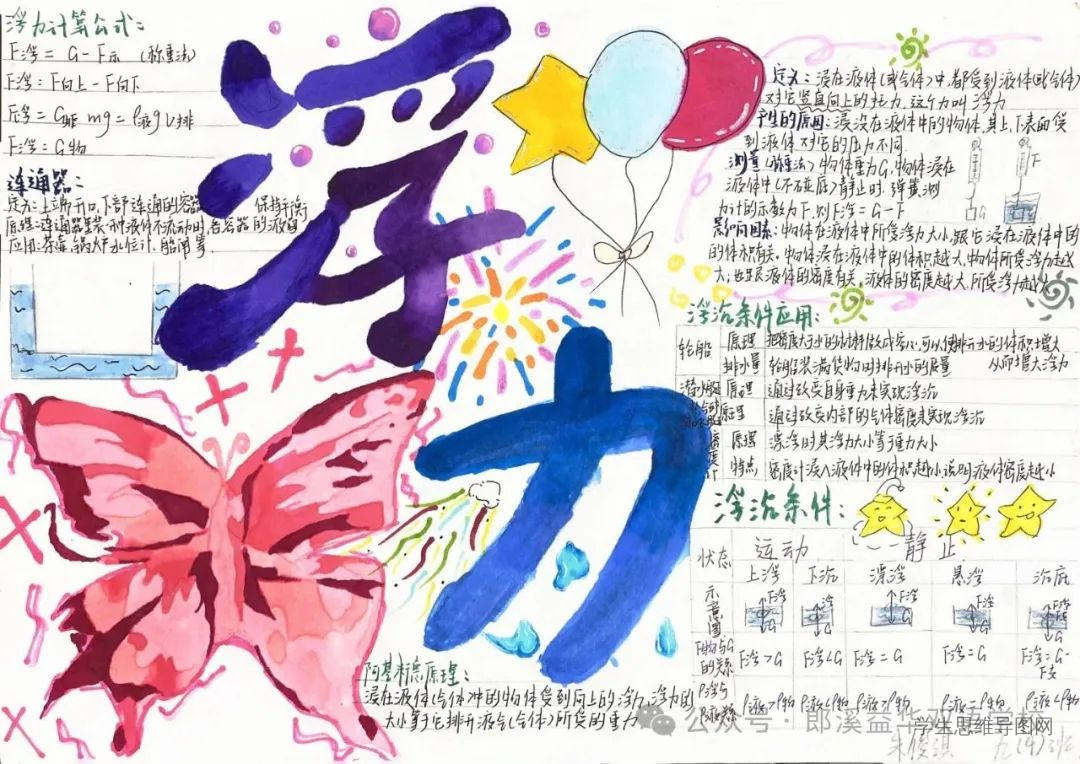 浮力计算公式：
F浮 = G-F示 （称重法）
F浮 = F向上-F向下
F浮 = G排 = mg = ρ液gV排
F浮 = G物
连通器：
定义：上端开口，下部连通的容器
保持平衡
原理：连通器里装同种液体不流动时，各容器的液面
应用：茶壶，锅炉水位计，船闸等
浮
力
定义：浸在液体（或气体）中，都受到液体（或气体）
对它竖直向上的托力，这个力叫浮力
产生的原因：浸没在液体中的物体，其上、下表面受
到液体对它的压力不同
测量（称重法）物体重力G，物体浸在
液体中（不碰底）静止时，弹簧测
力计的示数为F，则F浮=G-F
F
G
影响因素：物体在液体中所受浮力大小，跟它浸在液体中的
的体积有关，物体浸在液体中的体积越大，物体所受浮力越
大，也跟液体的密度有关，液体的密度越大，所受浮力越大
浮沉条件应用：
轮船 原理 把密度大于水的材料做成空心，可以使排开水的体积增大
从而增大浮力
排水量 轮船装满货物时排开水的质量
潜水艇 原理 通过改变自身重力来实现浮沉
原理 通过改变内部的气体密度来实现浮沉
原理 漂浮时其浮力大小等于重力大小
特点 密度计浸入液体中的体积越小说明液体密度越小
浮沉条件：
状态 运动 静止
上浮 下沉 漂浮 悬浮 沉底
示意图 F浮 G F浮 G F浮 G F浮 G F浮 G
F物与G的关系 F浮>G F浮<G F浮=G F浮=G F浮=G-F支
ρ液>ρ物 ρ液<ρ物 ρ液>ρ物 ρ液=ρ物 ρ液<ρ物
阿基米德原理：
浸在液体（气体）中的物体受到向上的浮力，浮力的
大小等于它排开液体（气体）所受的重力
公众号·郎溪益华双语学校
学生思维导图网
九（4）班